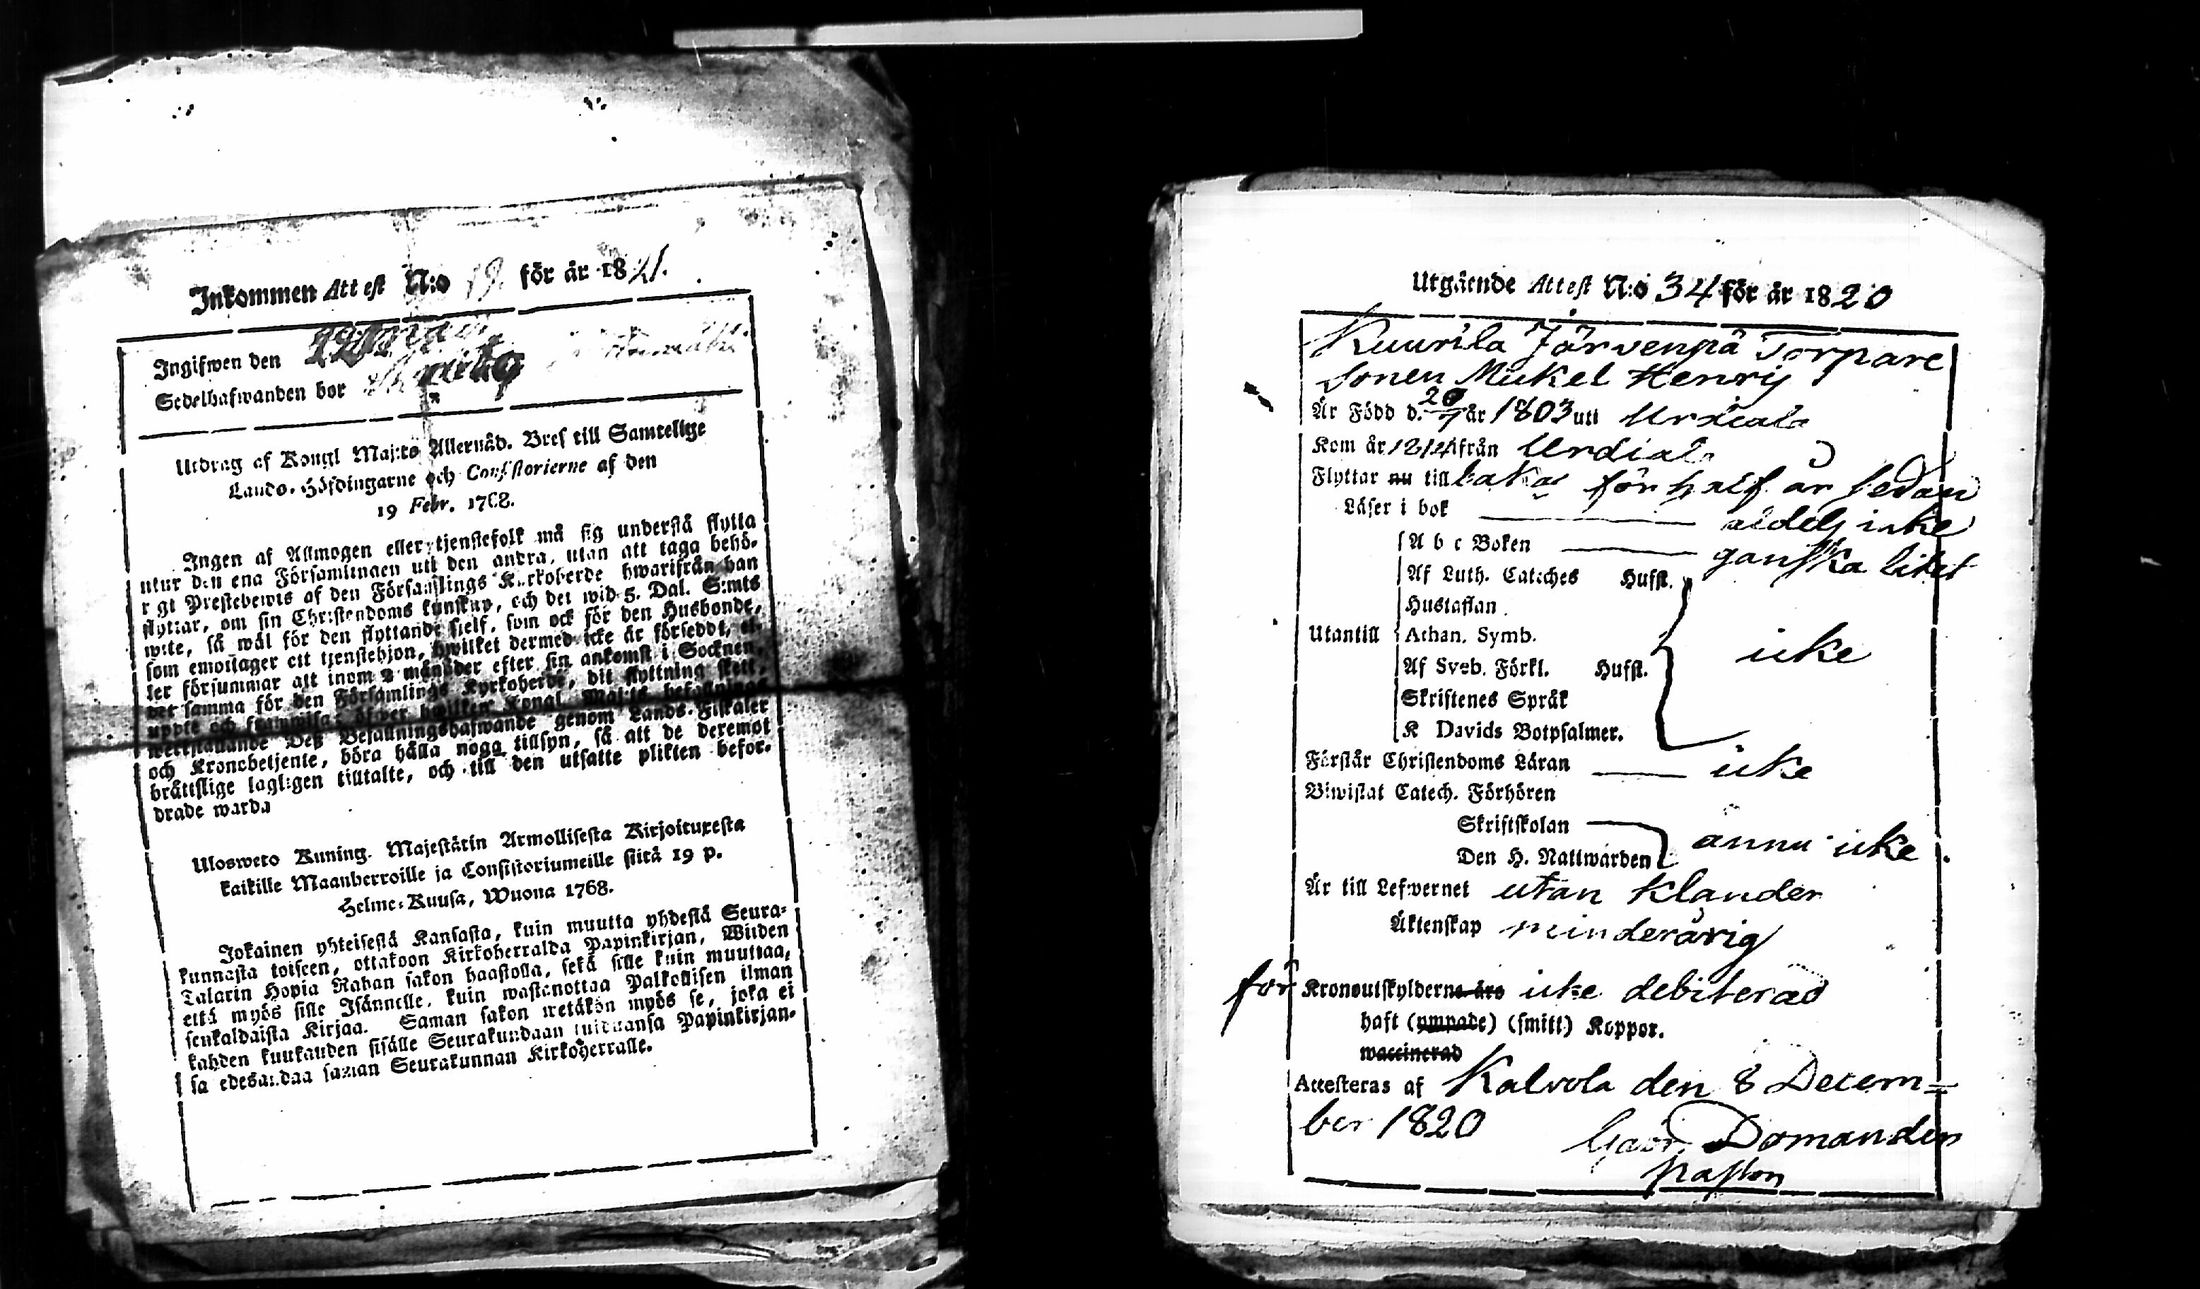 Inkommen Attest N:o 19. för år 1821.
Ingifwen den
Sedelhafwanden bor
Utdrag af Kongl Maj:ts Allernåd. Bref till Samtelige
Lands-Höfdingarne och Consistorierne af den
19 Febr. 1768.
Ingen af Allmogen eller tjenstefolk må sig understå flytta
utur den ena Församlingen uti den andra, utan att taga behö-
rigt Prestebewis af den Församlings Kyrkoherde hwarifrån han
flyttar, om sin Christendoms kunskap, och det wid 5. Dal. S:mts
wite, så wäl för den flyttande sielf, som ock för den Husbonde,
som emottager ett tjenstehjon, hwilket dermed icke är försedt, el-
ler försummar att inom 2 månader efter sin ankomst i Socknen,
det samma för den Församlings Kyrkoherde, dit flyttning skett,
uppte och framwisa: öfwer hwilken Kongl Maj:ts befallnings
werkställande Deß Befallningshafwande genom Lands-Fiskaler
och Kronobetjente, böra hålla noga tillsyn, så att de deremot
brättslige lagligen tilltalte, och till den utsatte plikten befor-
drade warda
Ulosweto Kuning. Majestätin Armollisesta Kirjoituxesta
kaikille Maanherroille ja Consistoriumeille siitä 19 p.
Helme-Kuusa, Wuona 1768.
Jokainen yhteisestä Kansasta, kuin muutta yhdestä Seura-
kunnasta toiseen, ottakoon Kirkoherralda Papinkirjan, Wiiden
Talarin Hopia Rahan sakon haastolla, sekä sille kuin muuttaa,
että myös sille Isännelle, kuin wastanottaa Palkollisen ilman
senkaldaista Kirjaa. Saman sakon wetäkön myös se, joka ei
kahden kuukauden sisälle Seurakundaan tulduansa Papinkirjan-
sa edesandaa saman Seurakunnan Kirkoherralle.
Utgående Attest N:o 34 för år 1820
Kuurila Järvenpä Torpare
sonen Mickel Henrij
Är Född d. 20/7 år 1803 uti Urdiala
Kom år 1814 ifrån Urdiala
Flyttar nu tillbakas för half år sedan
Läser i bok aldels icke
A b c Boken ganska litet
Af Luth. Cateches Hufst.
Hustaflan
Utantill Athan. Symb. icke
Af Sveb. Förkl. Hufst.
Skriftenes Språk
K Davids Botpsalmer.
Förstår Christendoms Läran icke
Biwistat Catech. Förhören
Skriftskolan
Den H. Nattwarden ännu icke
Är till Lefwernet utan klander
Äktenskap minderårig
för Kronoutskylderne års icke debiterad
haft (ympade) (smitt) Koppor.
waccinerad
Attesteras af Kalvola den 8 Decem=
ber 1820
Gabr. Domander
Pastor